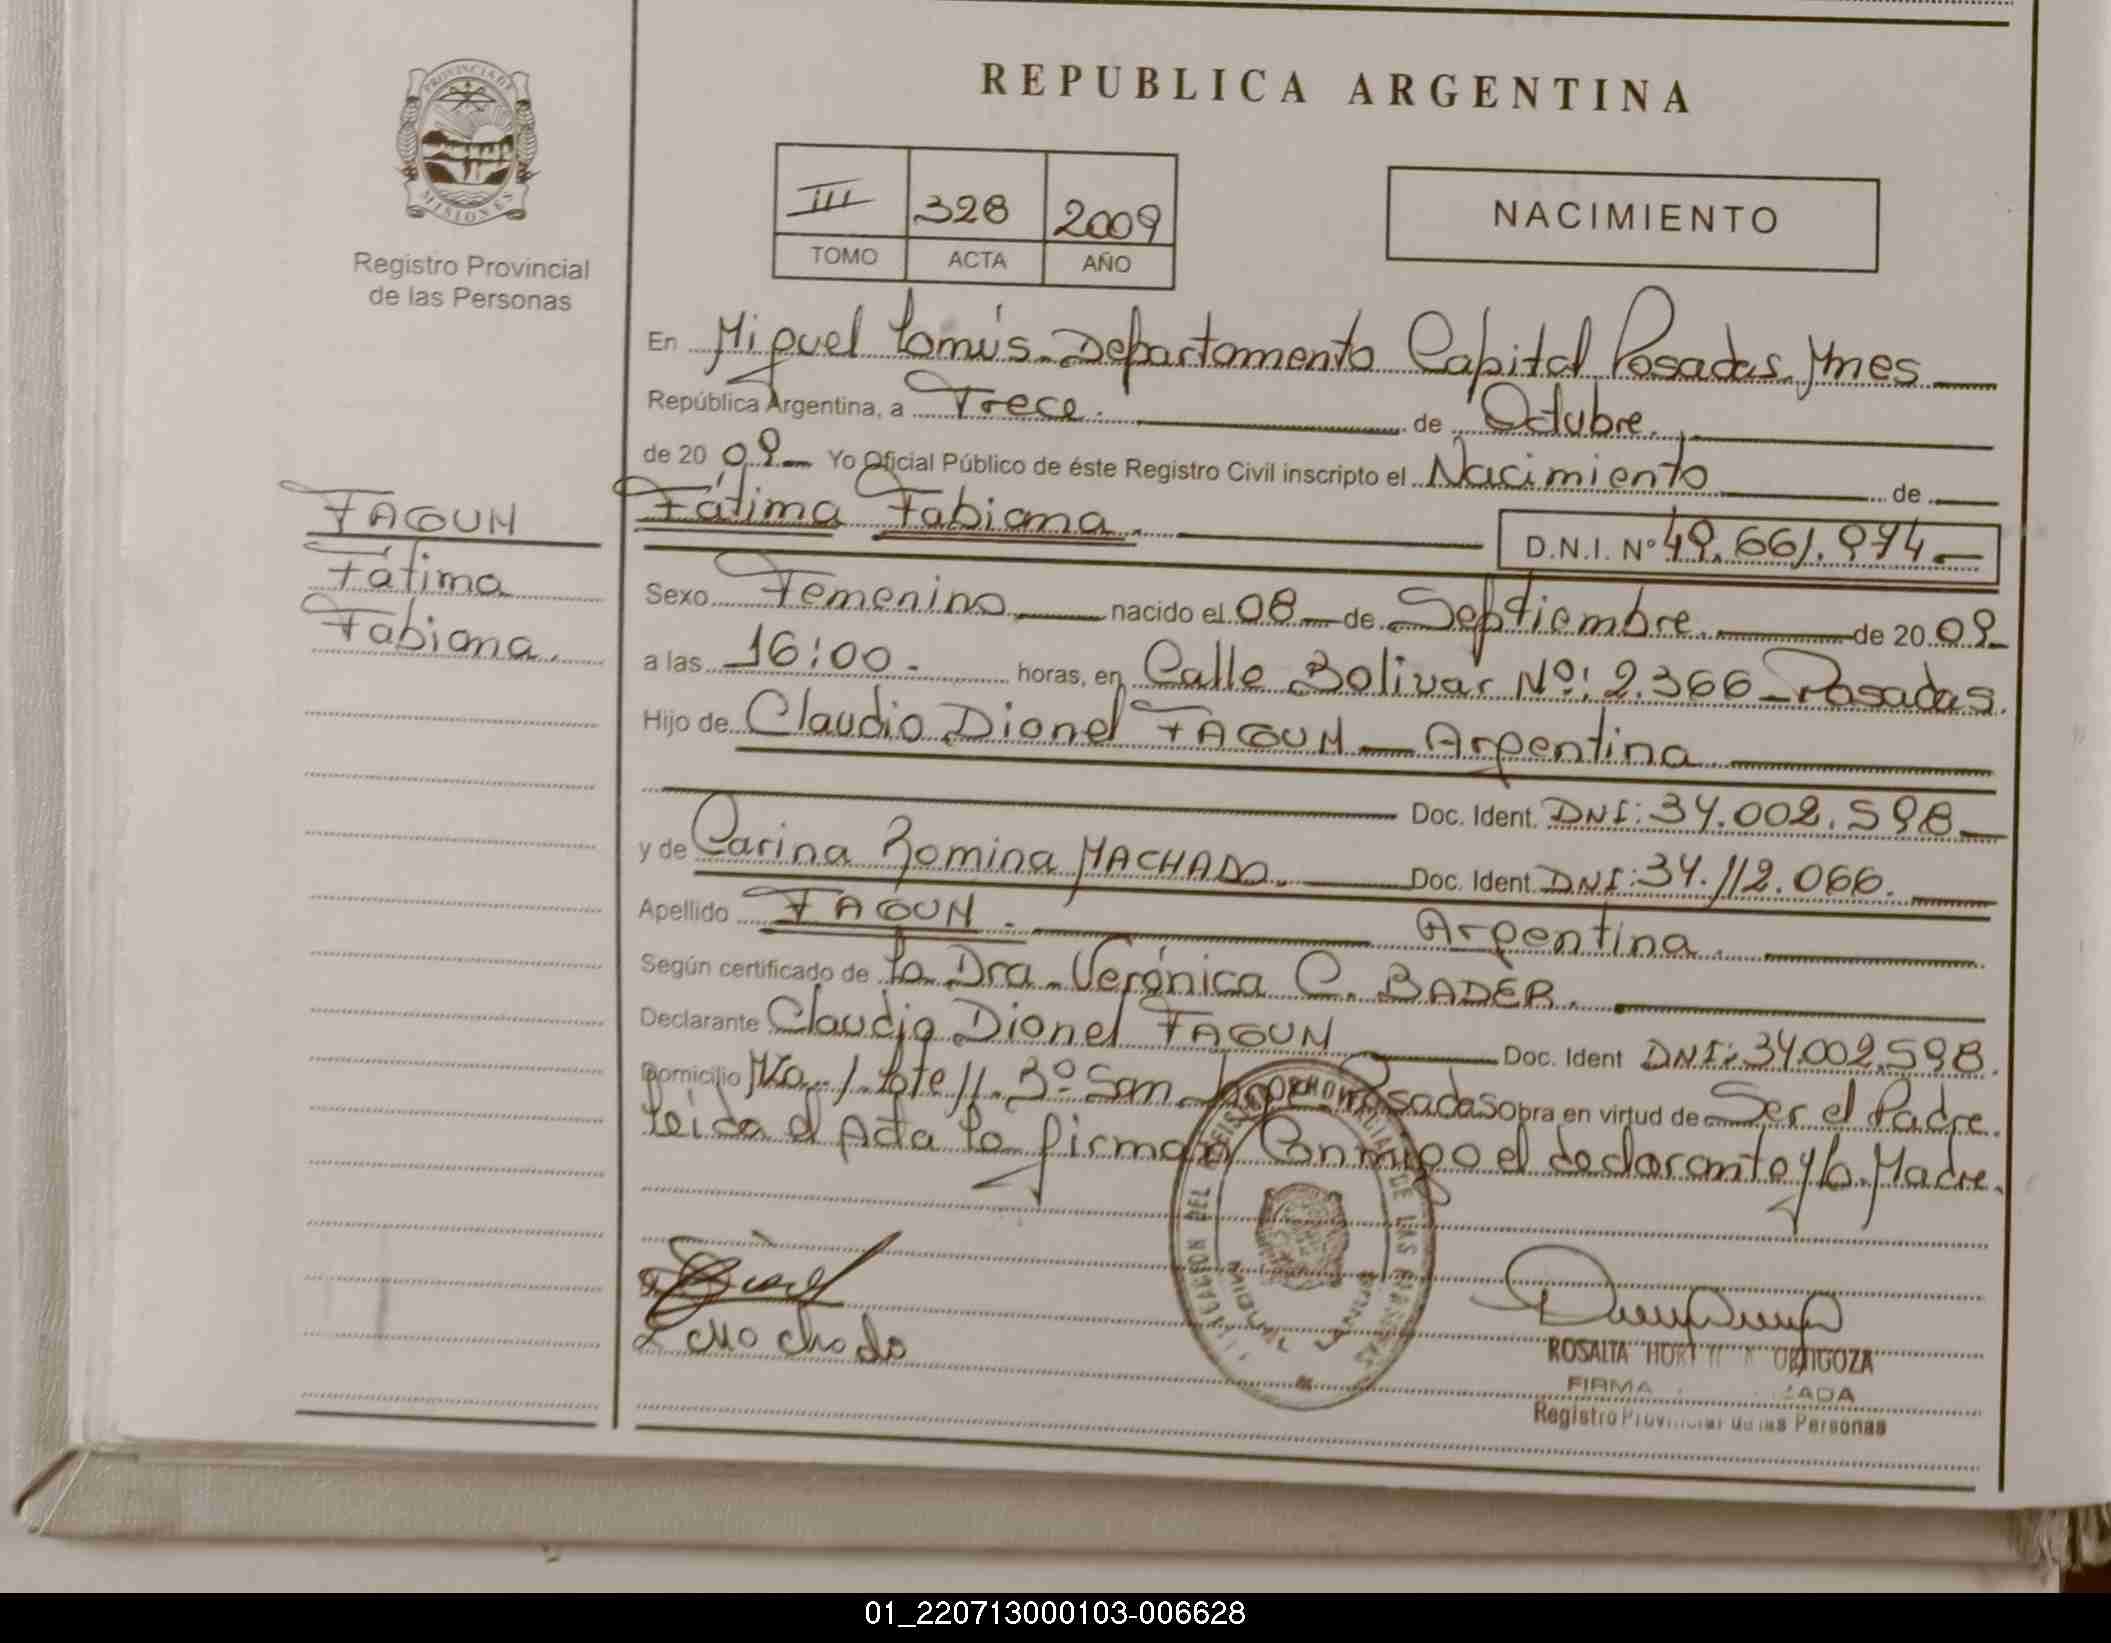 PROVINCIA DE
MISIONES
Registro Provincial
de las Personas
FAGUN
Fátima
Fabiana.
REPUBLICA ARGENTINA
III 328 2009
TOMO ACTA AÑO
NACIMIENTO
En Miguel Lanús Departamento Capital Posadas Mnes
República Argentina, a Trece. de Octubre.
de 20 09 Yo Oficial Público de éste Registro Civil inscripto el Nacimiento de
Fátima Fabiana.
D.N.I. Nº 49.661.974
Sexo Femenino nacido el 08 de Septiembre. de 20 09
a las 16:00. horas, en Calle Bolivar Nº: 2.366 - Posadas.
Hijo de Claudio Dionel FAGUN Argentina
Doc. Ident. DNI: 34.002.598
y de Carina Romina MACHADO. Doc. Ident. DNI: 34.112.066.
Apellido FAGUN. Argentina.
Según certificado de la Dra. Verónica C. BADER.
Declarante Claudio Dionel FAGUN Doc. Ident DNI: 34.002.598.
Domicilio Mza. 1 Lote 11. 3º San Jorge Posadas obra en virtud de Ser el Padre.
Leida el Acta la firman Conmigo el declarante y la Madre.
Machado
ROSALIA ORTIGOZA
FIRMA
Registro Provincial de las Personas
01_220713000103-006628